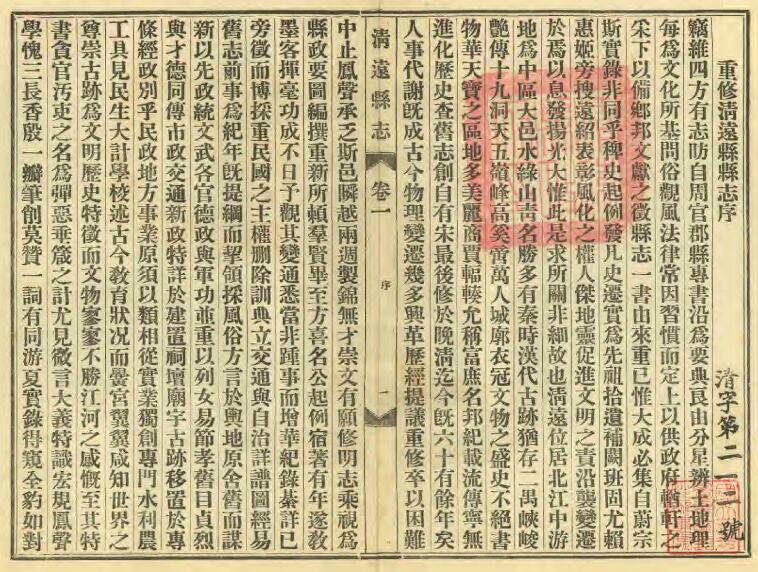 重修淸遠縣縣志序
清字第二一二號
竊維四方有志昉自周官郡縣專書沿爲要典良由分星辨土地理
每爲文化所基問俗觀風法律常因習慣而定上以供政府輶軒之
采下以備鄉邦文獻之徵縣志一書由來重已惟大成必集自蔚宗
斯實錄非同乎稗史起例發凡史遷實爲先祖拾遺補闕班固尤賴
惠姬旁搜遠紹表彰風化之權人傑地靈促進文明之責沿襲變遷
於焉以息發揚光大惟此是求所關非細故也淸遠位居北江中游
地爲中區大邑水綠山靑名勝多有秦時漢代古跡猶存二禺峽峻
艷傳十九洞天五嶺峰高奚啻萬人城廓衣冠文物之盛史不絕書
物華天寶之區地多美麗商賈輻輳允稱富庶名邦紀載流傳寧無
進化歷史查舊志創自有宋最後修於晚淸迄今旣六十有餘年矣
人事代謝旣成古今物理變遷幾多興革歷經提議重修卒以困難
淸遠縣志
卷一
序
一
中止鳳聲承乏斯邑瞬越兩週製錦無才崇文有願修明志乘視爲
縣政要圖編撰重新所頼羣賢畢至方喜名公起例宿著有年遂敎
墨客揮毫功成不日予觀其變通悉當非踵事而增華紀錄綦詳已
旁徵而博採重民國之主權删除訓典立交通與自治詳譜圖經易
舊志前事爲紀年旣提綱而挈領採風俗方言於輿地原舍舊而謀
新以先政統文武各官德政與軍功並重以列女易節孝舊目貞烈
與才德同傳市政交通新政特詳於建置祠壇廟字古跡移置於專
條經政別乎民政地方事業原須以類相從實業獨創專門水利農
工具見民生大計學校述古今敎育狀况而黌宮翼翼咸知世界之
尊崇古跡爲文明歷史特徵而文物寥寥不勝江河之感慨至其特
書貪官汚吏之名爲彈惡垂箴之計尤見微言大義特識宏規鳳聲
學愧三長香殷一瓣筆創莫贊一詞有同游夏實錄得窺全豹如對